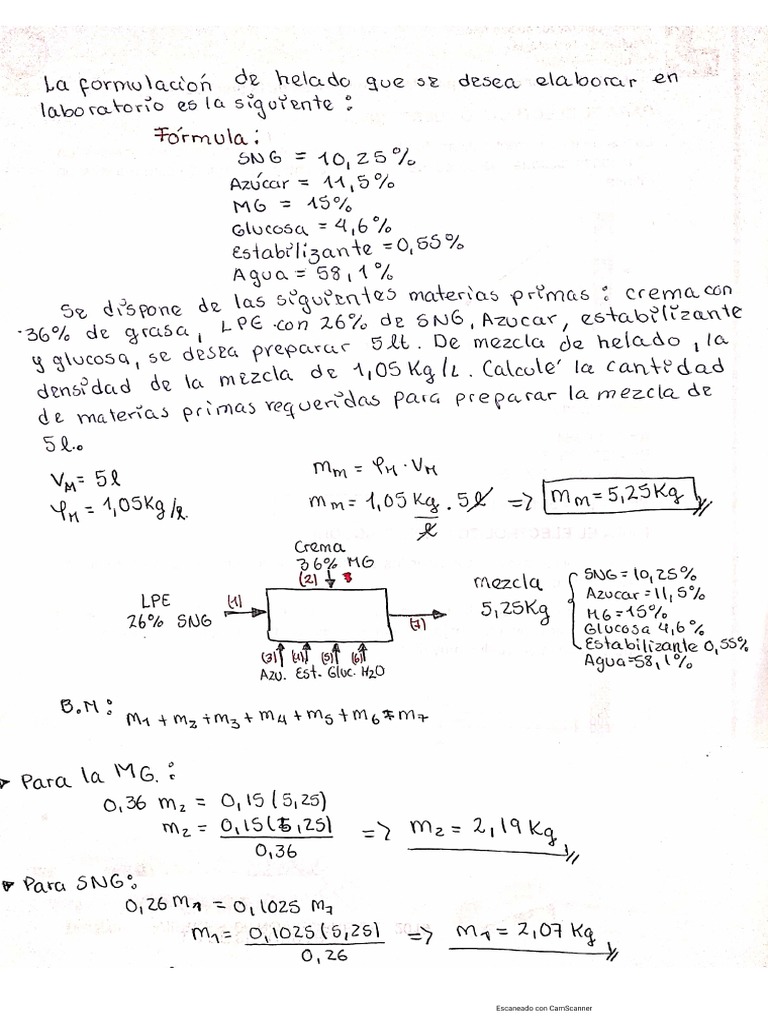 La formulación de helado que se desea elaborar en
laboratorio es la siguiente:
Fórmula:
SNG = 10,25%
Azúcar = 11,5%
MG = 15%
Glucosa = 4,6%
Estabilizante = 0,55%
Agua = 58,1%
Se dispone de las siguientes materias primas: crema con
36% de grasa, LPE con 26% de SNG, Azucar, estabilizante
y glucosa, se desea preparar 5lt. De mezcla de helado, la
densidad de la mezcla de 1,05 Kg/L. Calculé la cantidad
de materias primas requeridas para preparar la mezcla de
5l.
V_M = 5l
φ_M = 1,05Kg/l.
m_m = φ_M . V_M
m_m = 1,05 Kg/l . 5l => m_m = 5,25Kg
Crema
36% MG
(2)
LPE
26% SNG
(1)
(7)
(3) (4) (5) (6)
Azu. Est. Gluc. H2O
mezcla
5,25Kg
SNG = 10,25%
Azucar = 11,5%
MG = 15%
Glucosa 4,6%
Estabilizante 0,55%
Agua = 58,1%
B.M:
m1 + m2 + m3 + m4 + m5 + m6 = m7
Para la MG.:
0,36 m2 = 0,15(5,25)
m2 = 0,15(5,25) / 0,36 => m2 = 2,19 Kg
Para SNG:
0,26 m1 = 0,1025 m7
m1 = 0,1025(5,25) / 0,26 => m1 = 2,07 Kg
Escaneado con CamScanner